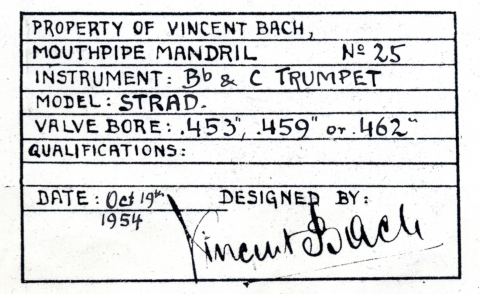 PROPERTY OF VINCENT BACH,
MOUTHPIPE MANDRIL № 25
INSTRUMENT: Bb & C TRUMPET
MODEL: STRAD.
VALVE BORE: .453", .459" or .462"
QUALIFICATIONS:
DATE: Oct 19th 1954
DESIGNED BY:
Vincent Bach